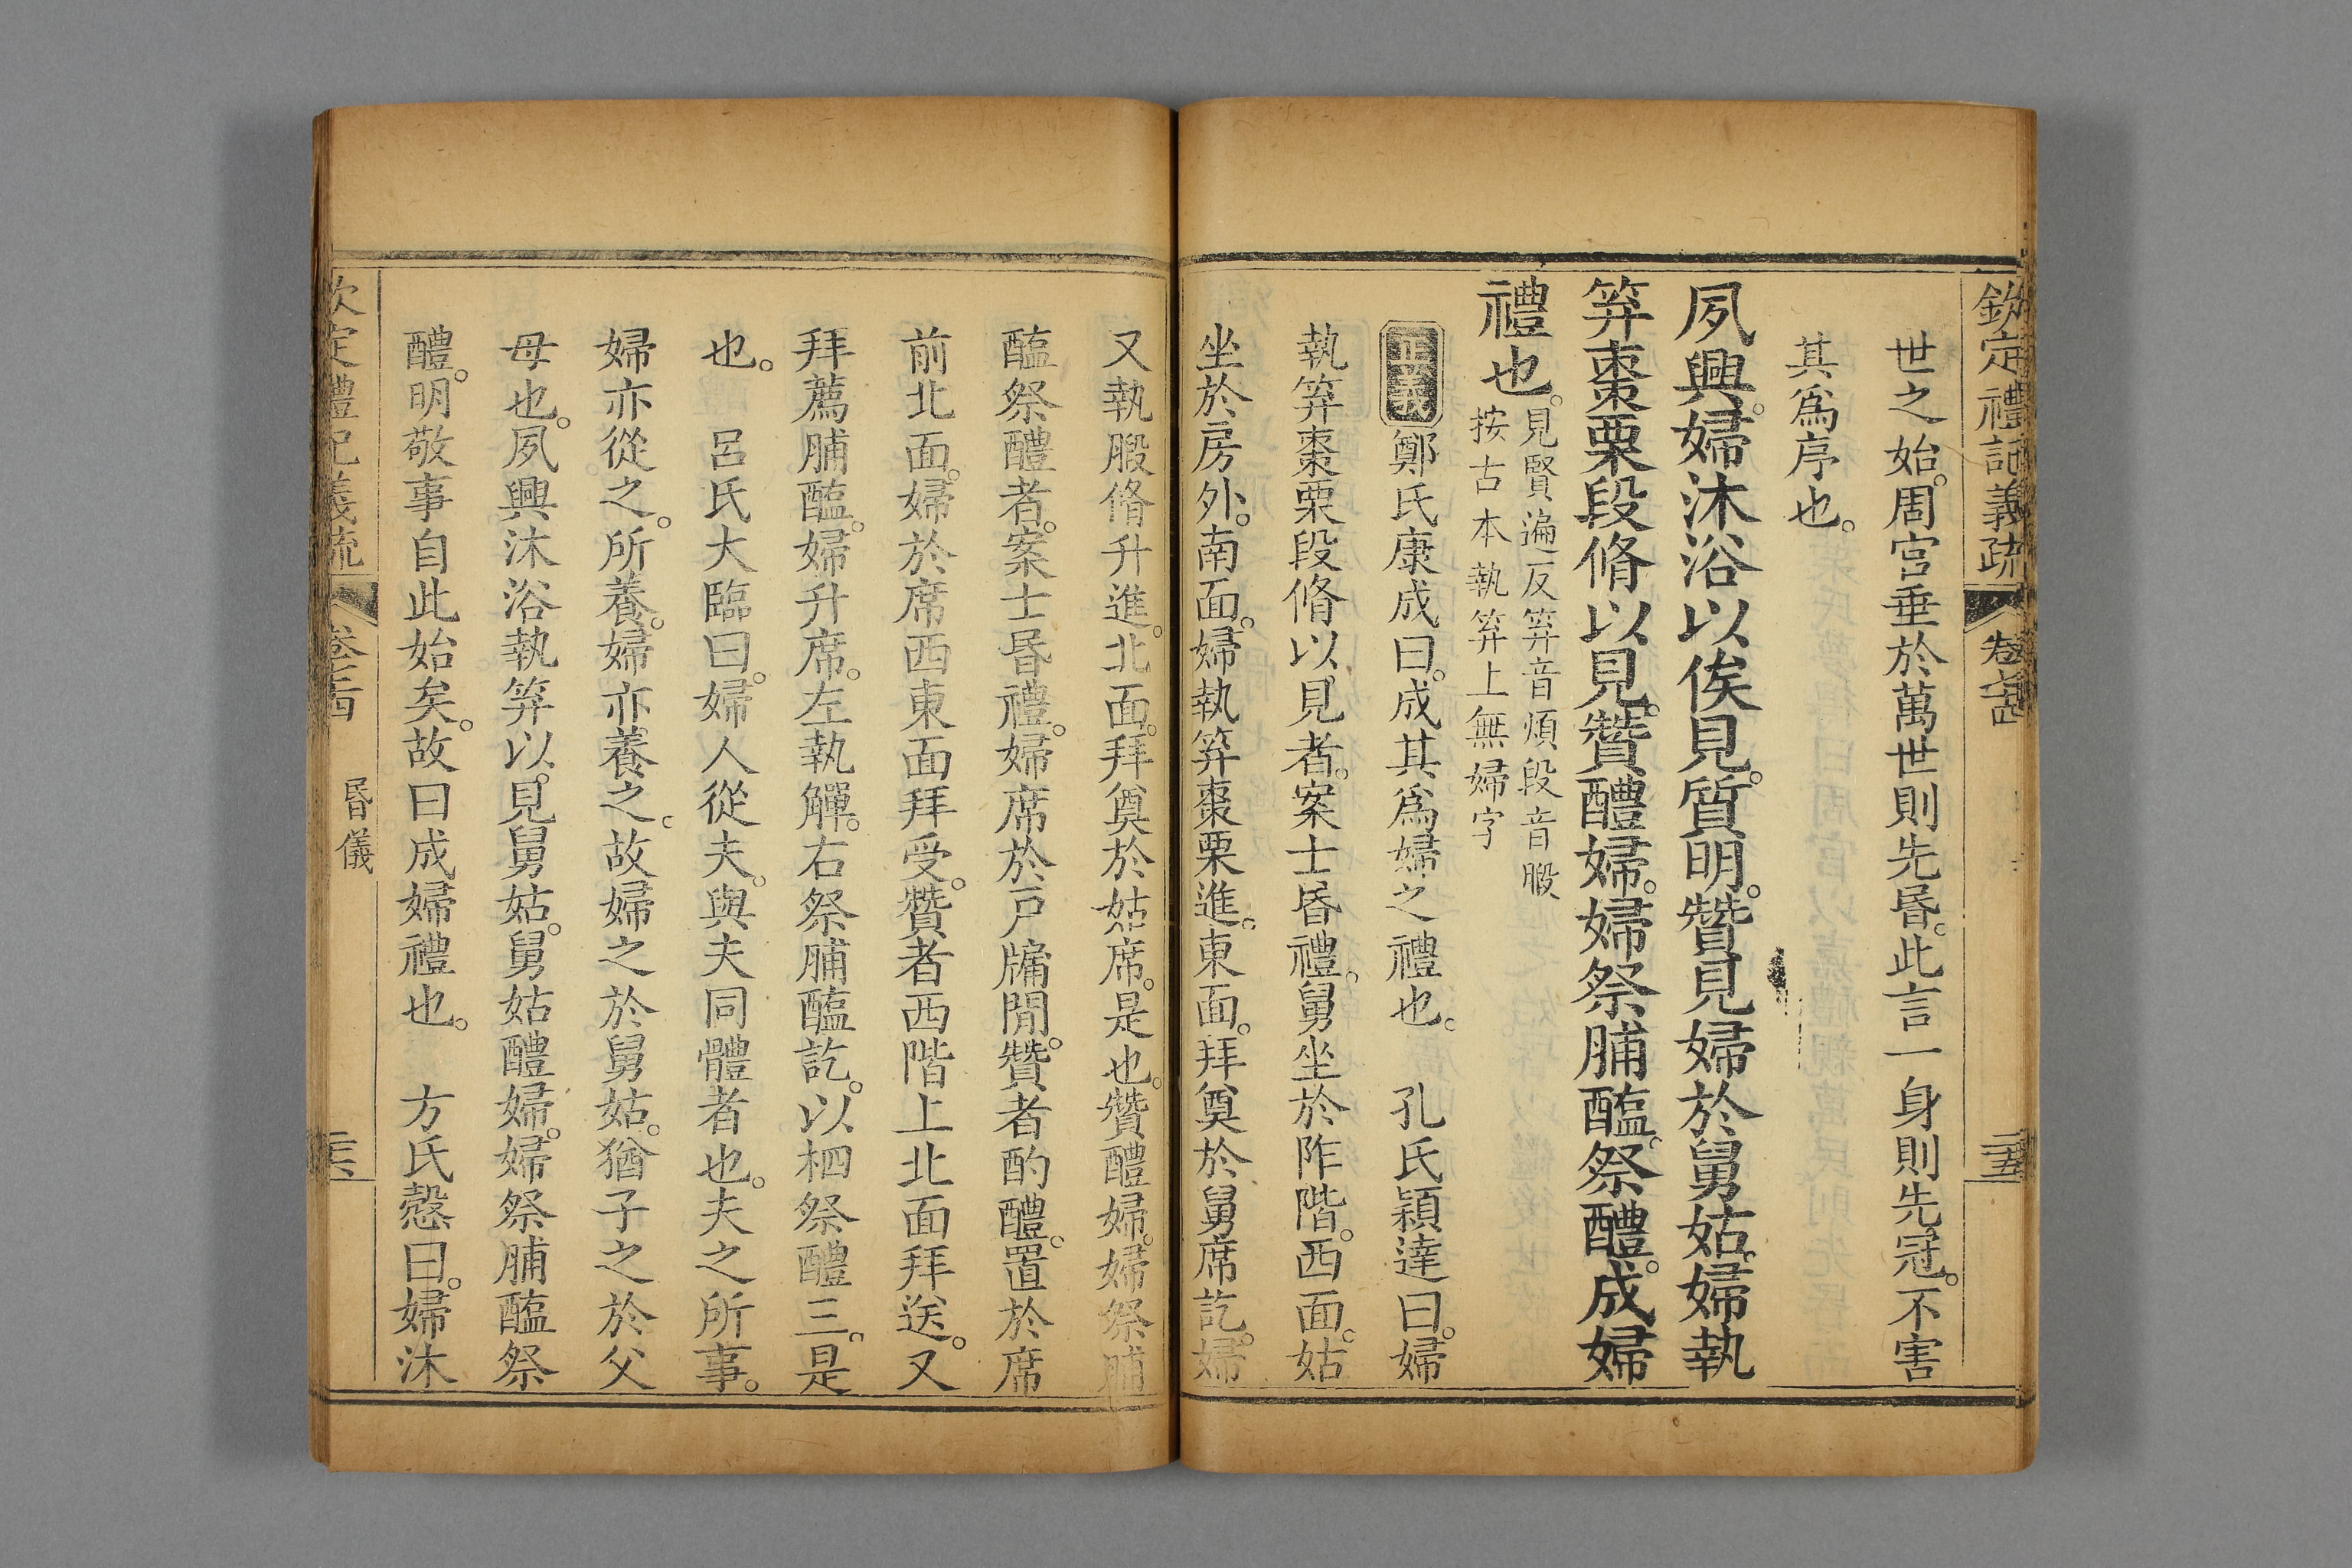 欽定禮記義疏 卷七十四 二十五
世之始。周官垂於萬世則先昬。此言一身則先冠。不害
其爲序也。
夙興。婦沐浴以俟見。質明。贊見婦於舅姑。婦執
笲棗栗段脩以見。贊醴婦。婦祭脯醢。祭醴。成婦
禮也。
見賢遍反笲音煩段音腶
按古本執笲上無婦字
正義 鄭氏康成曰。成其爲婦之禮也。 孔氏穎達曰。婦
執笲棗栗段脩以見者。案士昬禮。舅坐於阼階。西面。姑
坐於房外。南面。婦執笲棗栗進。東面。拜奠於舅席訖。婦
又執腶脩升進。北面。拜奠於姑席。是也。贊醴婦。婦祭脯
醢祭醴者。案士昬禮。婦席於戸牖閒。贊者酌醴。置於席
前北面。婦於席西東面拜受。贊者西階上北面拜送。又
拜薦脯醢。婦升席。左執觶。右祭脯醢訖。以柶祭醴三。是
也。 呂氏大臨曰。婦人從夫。與夫同體者也。夫之所事。
婦亦從之。所養。婦亦養之。故婦之於舅姑。猶子之於父
母也。夙興沐浴執笲以見舅姑。舅姑醴婦。婦祭脯醢祭
醴。明敬事自此始矣。故曰成婦禮也。 方氏慤曰。婦沐
欽定禮記義疏 卷七十四 昬儀 二十六